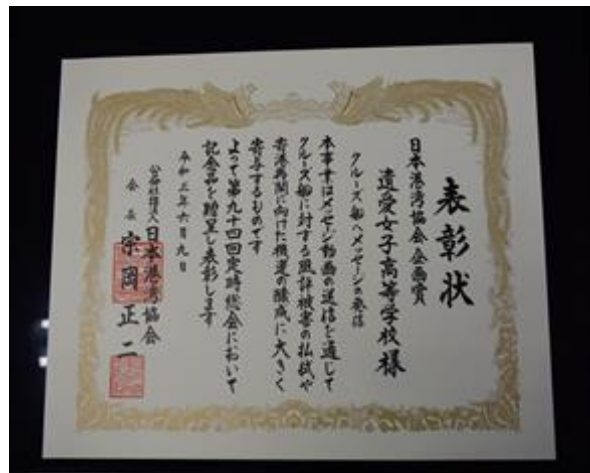 表彰状
日本港湾協会 企画賞
遺愛女子高等学校様
クルーズ船へメッセージの発信
本事業はメッセージ動画の送信を通して
クルーズ船に対する風評被害の払拭や
寄港再開に向けた機運の醸成に大きく
寄与するものです
よって第九十四回定時総会において
記念品を贈呈し表彰します
令和三年六月九日
公益社団法人 日本港湾協会
会長 宗岡正二